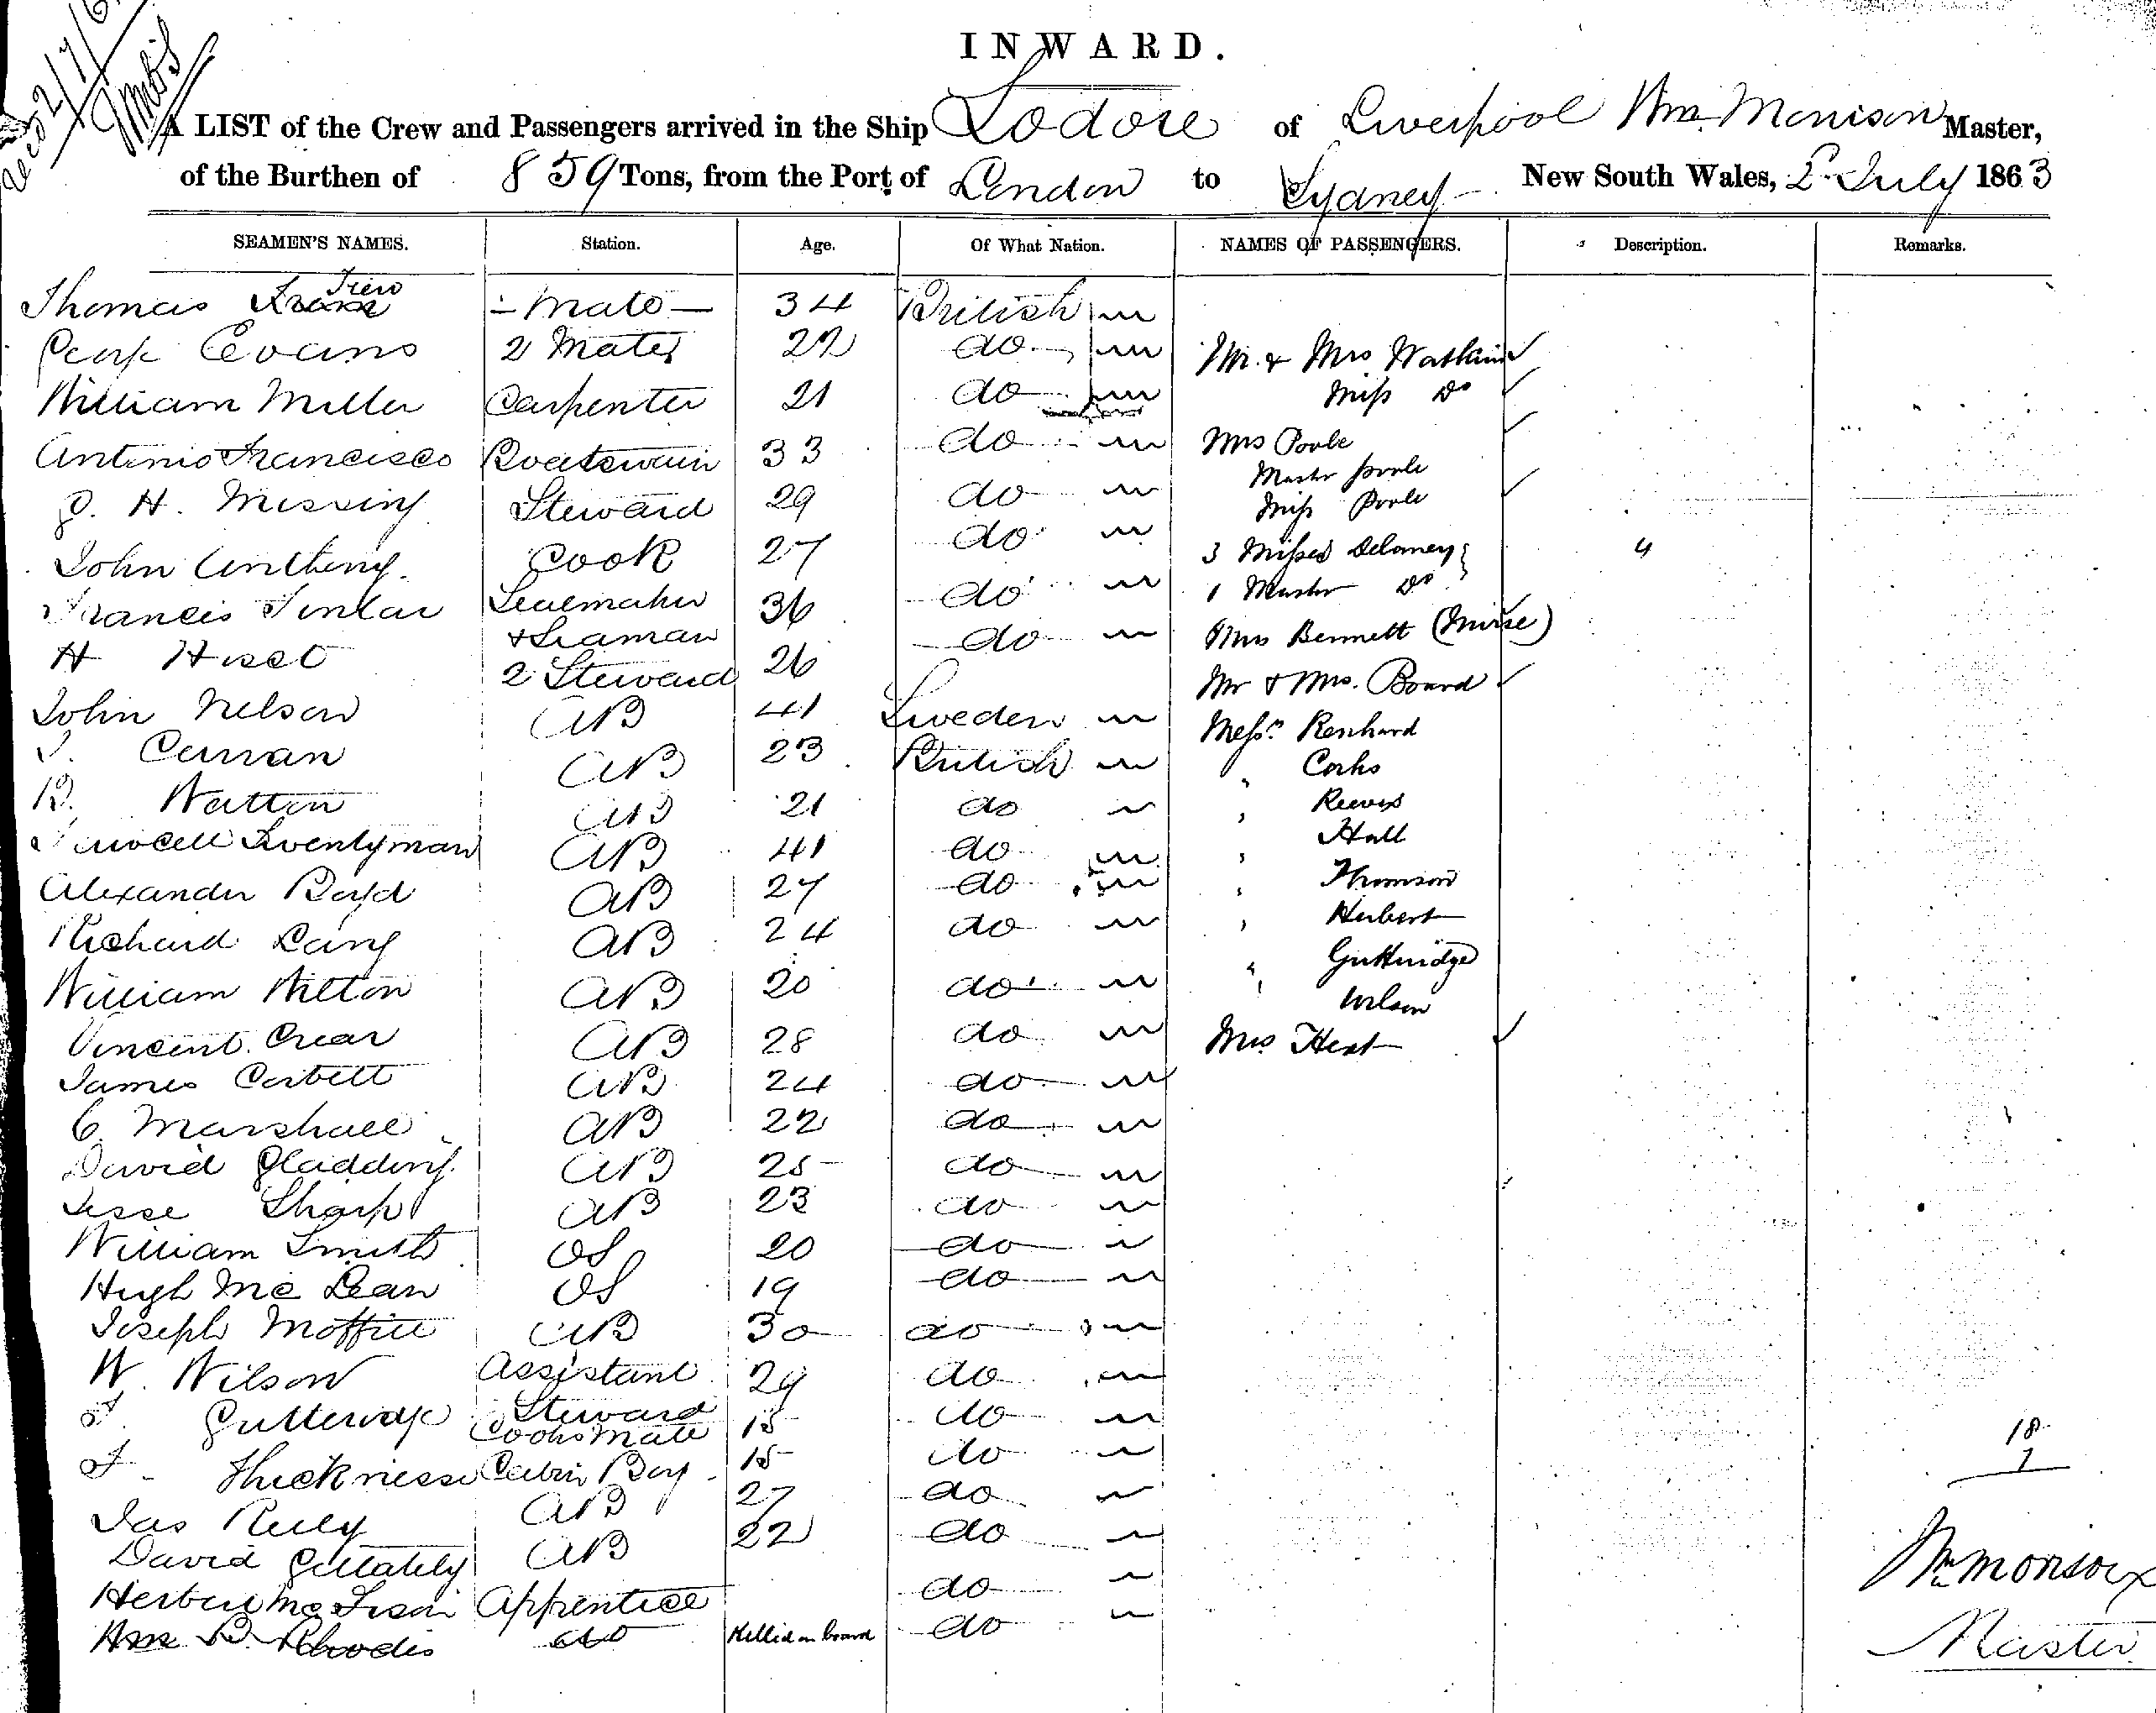 INWARD.
A LIST of the Crew and Passengers arrived in the Ship Lodore of Liverpool Wm. Morrison Master,
of the Burthen of 859 Tons, from the Port of London to Sydney New South Wales, 2 July 1863
SEAMEN'S NAMES. Station. Age. Of What Nation. NAMES OF PASSENGERS. Description. Remarks.
Thomas Mate 34 British
George Evans 2 Mate 22 do Mr. & Mrs Watkins
William Miller Carpenter 21 do Miss Do
Antonio Francisco Boatswain 33 do Mrs Poole
Master Poole
J. H. Missing Steward 29 do Miss Poole
John Anthony Cook 27 do 3 Misses Delaney 4
Francis Sealmaker 36 do 1 Master Do
& Seaman do Mrs Bennett (Nurse)
H 2 Steward 26 Mr & Mrs. Board
John Nelson AB 41 Sweden Messrs Renhard
Curran AB 23 British " Corks
Watton AB 21 do " Reeves
Twentyman AB 41 do " Hall
Alexander Boyd AB 27 do " Thomson
Richard Lang AB 24 do " Herbert
William Wilton AB 20 do " Guttridge
" Wilson
Vincent Crear AB 28 do Mrs Hext
James Corbett AB 24 do
C Marshall AB 22 do
David Gladding AB 25 do
Jesse Sharp AB 23 do
William Smith OS 20 do
Hugh Mc Lean OS 19 do
Joseph Moffitt AB 30 do
W. Wilson Assistant 29 do
Steward
Gutteridge Cooks Mate 15 do
F. Thicknesse Cabin Boy 15 do 18
1
Jas Reily AB 27 do
David Gellately AB 22 do
Wm Morison
Herbert Apprentice do
Wm Rhodes do Killed on board do
Master